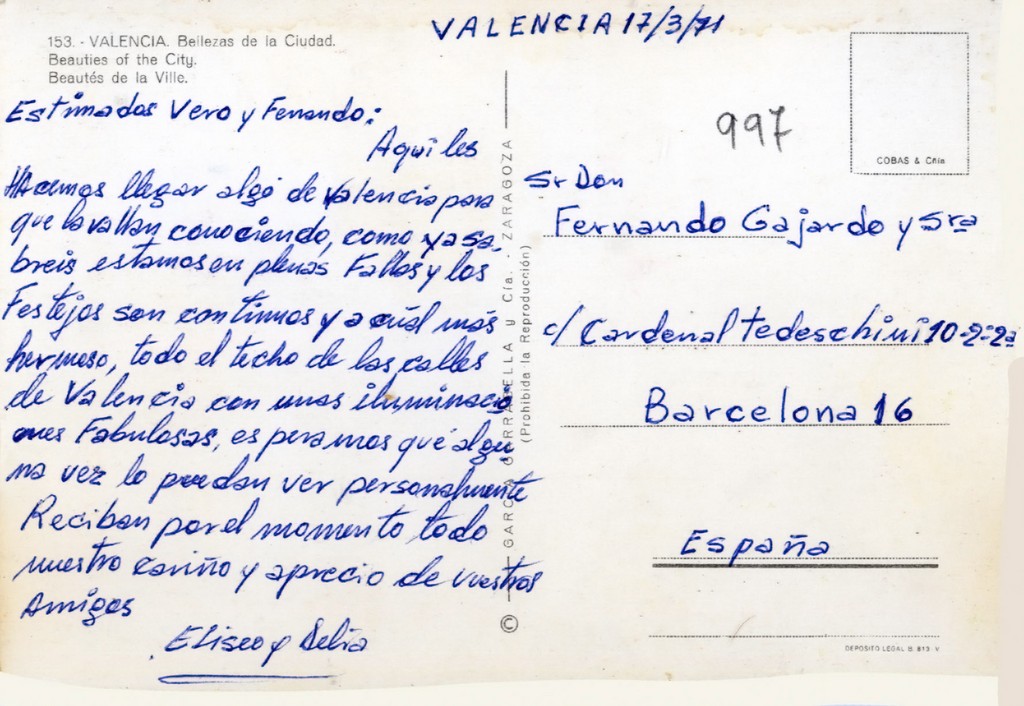 VALENCIA 17/3/71
153. - VALENCIA. Bellezas de la Ciudad.
Beauties of the City.
Beautés de la Ville.
Estimados Vero y Fernando:
Aqui les
Hacemos llegar algo de Valencia para
que la vallan conociendo, como ya sa.
breis estamos en plenas Fallas y los
Festejos son continuos y a cuál más
hermoso, todo el techo de las calles
de Valencia con unas iluminaci
ones Fabulosas, esperamos qué algu
na vez lo puedan ver personalmente
Reciban por el momento todo
nuestro cariño y aprecio de vuestros
Amigos
Eliseo y Delia
© GARCIA GARRABELLA y Cía. - ZARAGOZA
(Prohibida la Reproducción)
997
COBAS & Cñia
Sr Don
Fernando Gajardo y Sra
c/ Cardenal Tedeschini 10-2=2a
Barcelona 16
España
DEPOSITO LEGAL B. 813 V